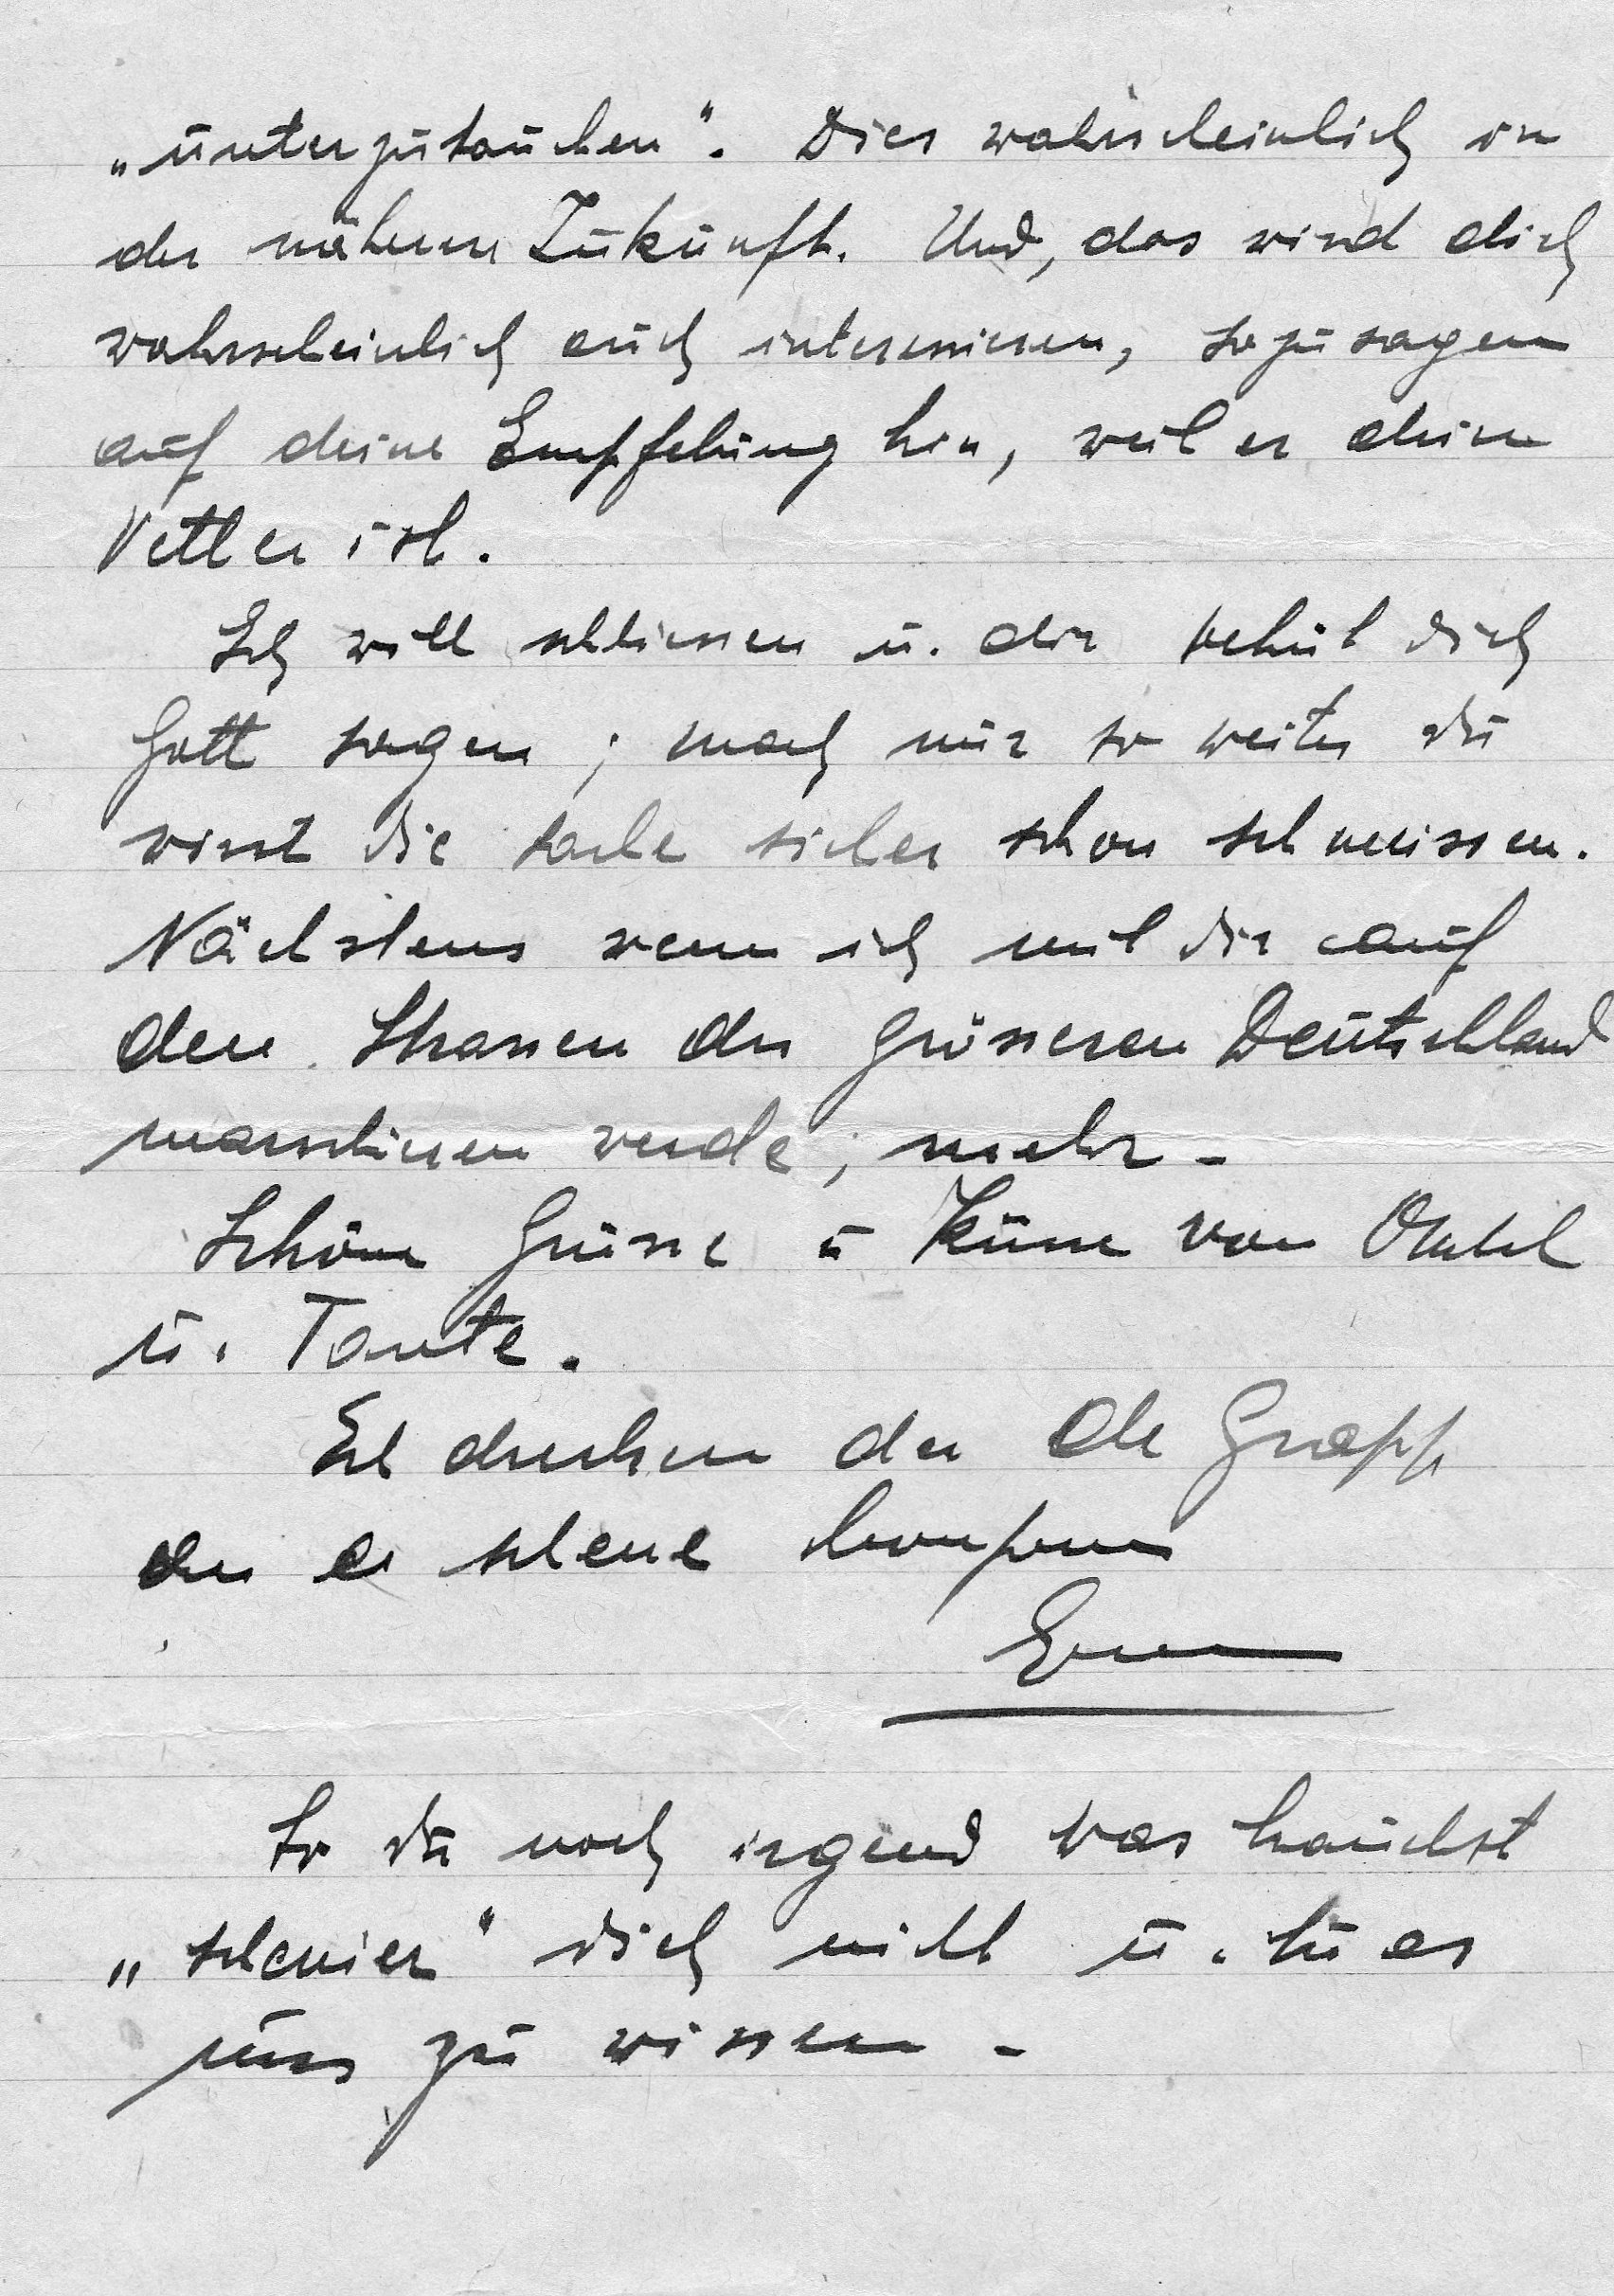 „unterzutauchen". Dies wahrscheinlich in
der näheren Zukunft. Und, das wird dich
wahrscheinlich auch interessieren, sozusagen
auf deine Empfehlung hin, weil er dein
Vetter ist.
Ich will schliessen u. dir behüt dich
Gott sagen; mach nur so weiter du
wirst die Sache sicher schon schmeissen.
Nächstens wenn ich mit dir auf
den Strassen des grösseren Deutschland
marschieren werde, mehr -
Schöne Grüsse u Küsse von Onkel
u. Tante.
Es drucken der de Grapp
en e schene
So du noch irgend was brauchst
„schenier" dich nicht u. tu es
uns zu wissen -